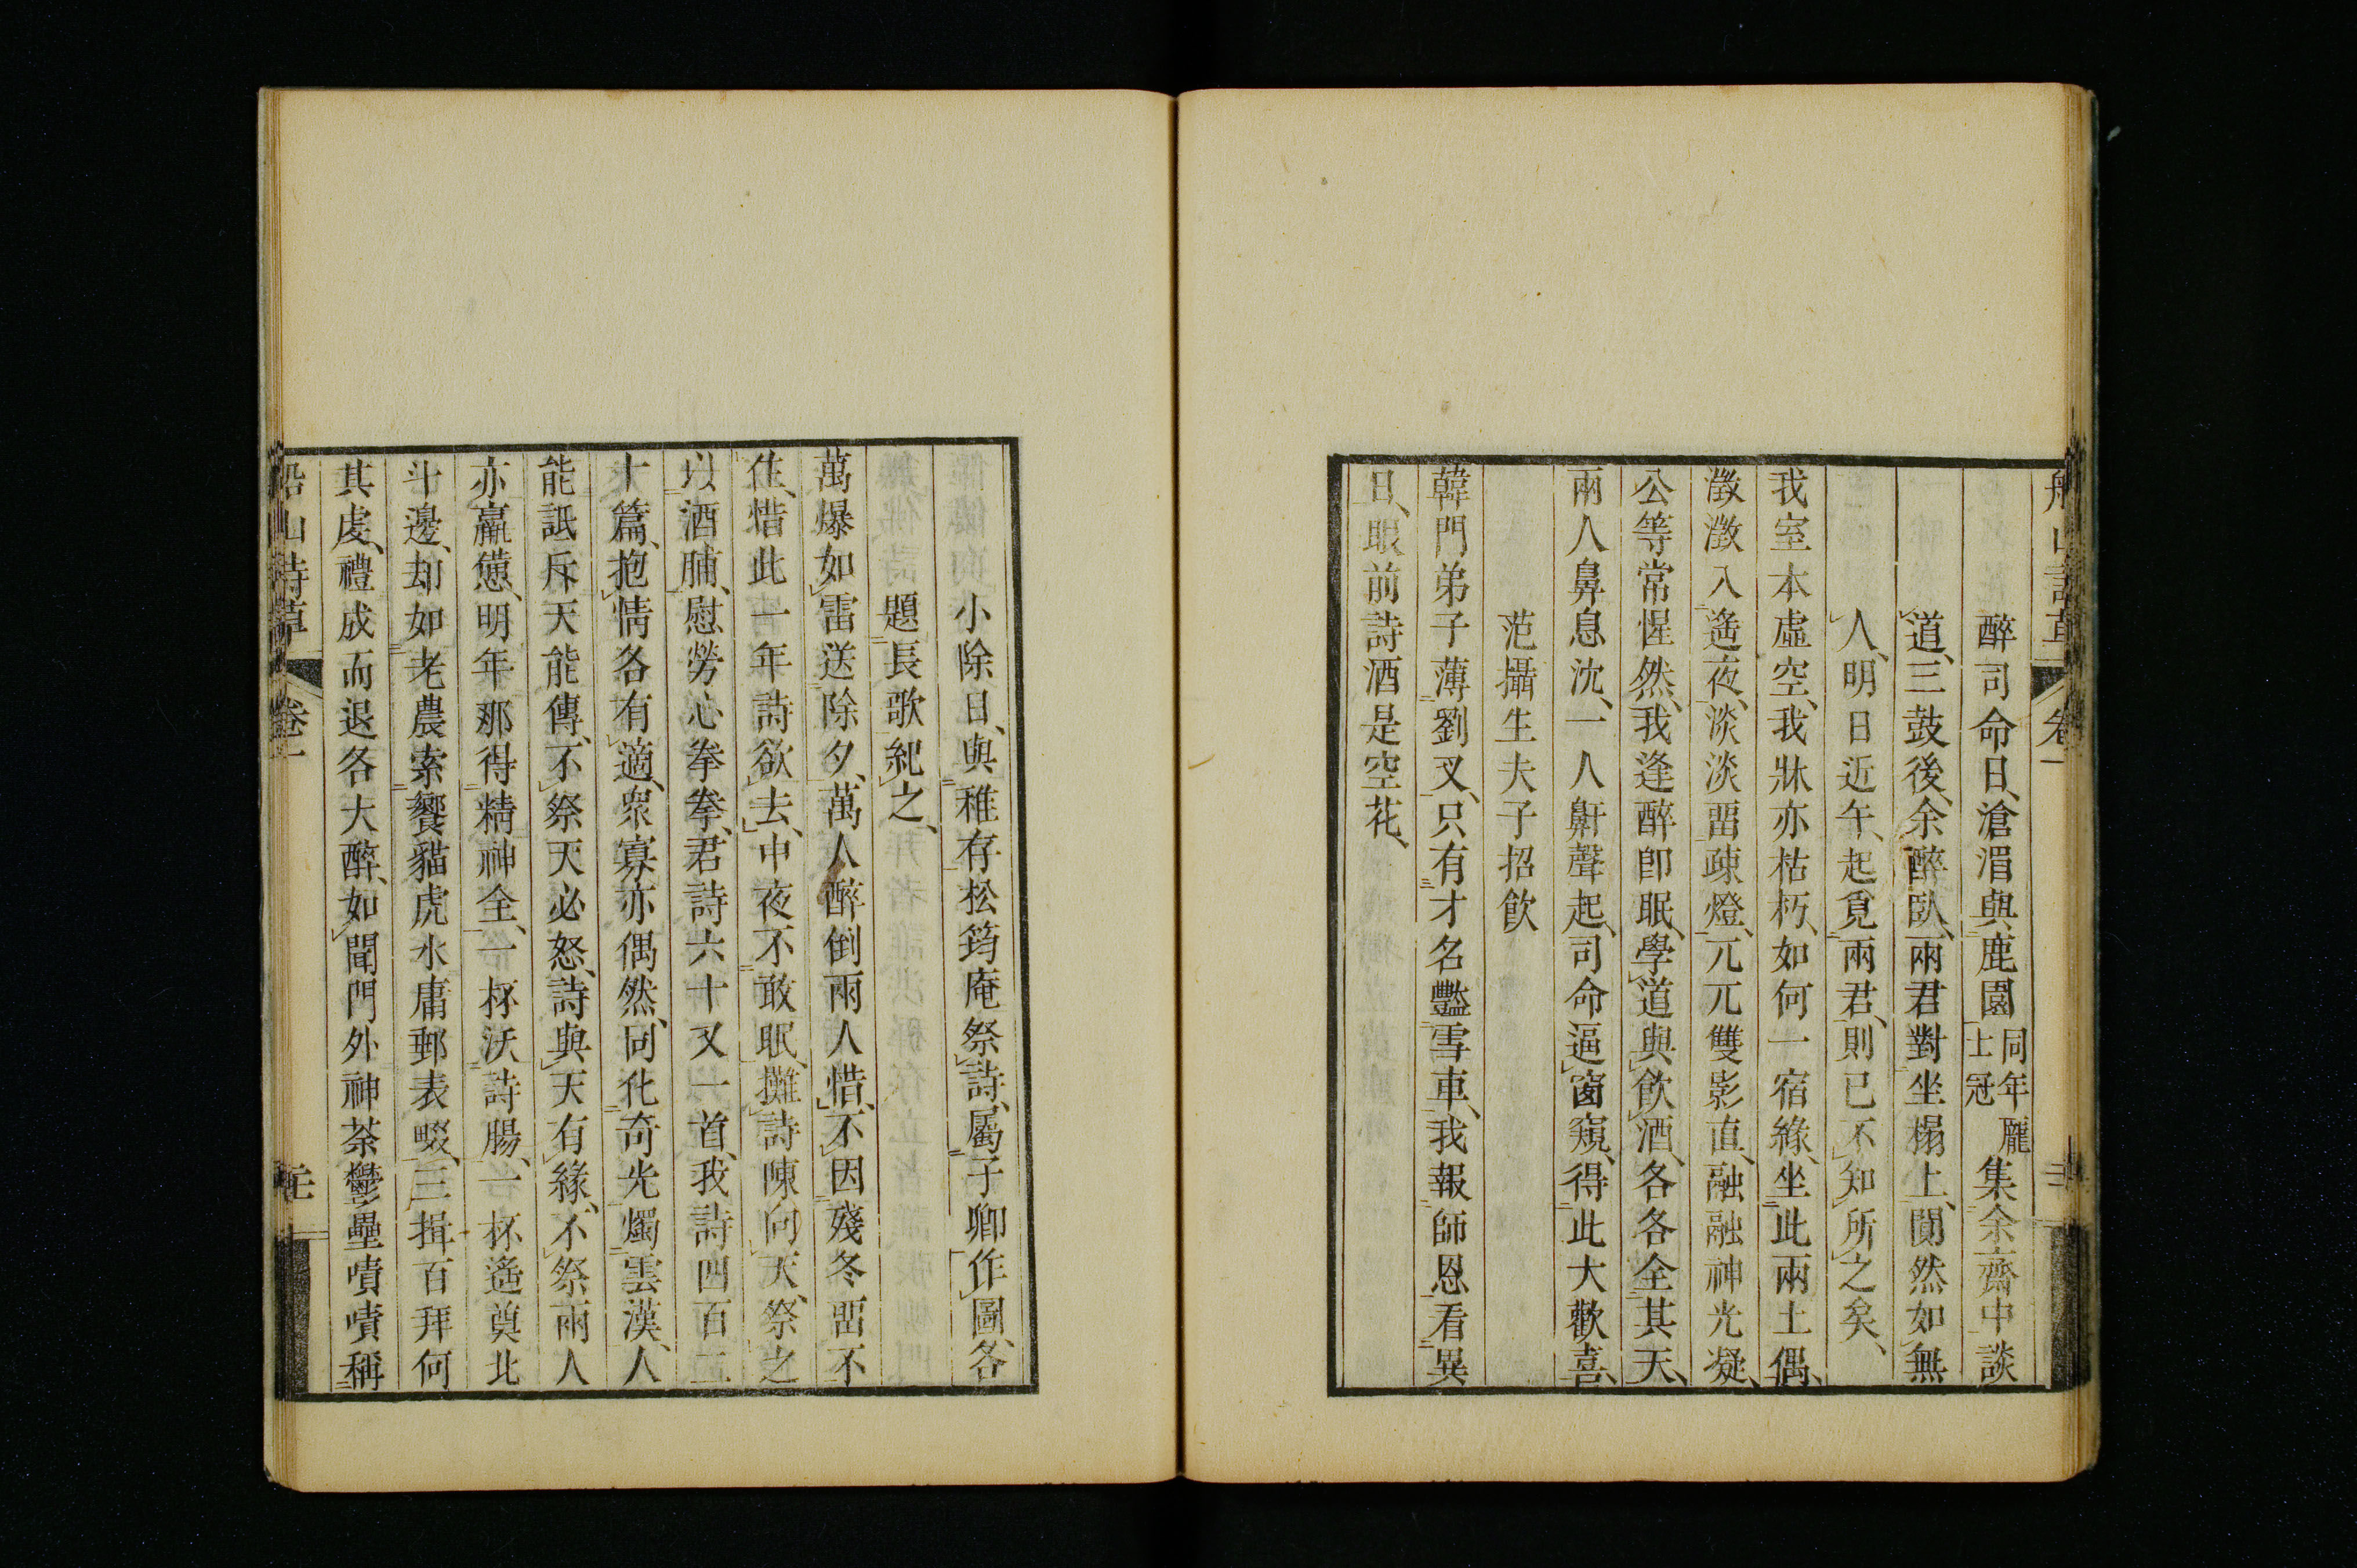 船山詩草 卷一
醉司命日、滄湄與鹿園同年龐士冠集余齋中談
道、三鼓後、余醉臥、兩君對坐榻上、闃然如無
人、明日近午、起覓兩君、則已不知所之矣、
我室本虛空、我牀亦枯朽、如何一宿緣、坐此兩土偶、
澂澂入遙夜、淡淡畱疎燈、兀兀雙影直、融融神光凝、
公等常惺然、我逢醉卽眠、學道與飮酒、各各全其天、
兩人鼻息沈、一人鼾聲起、司命逼窗窺、得此大歡喜、
范攝生夫子招飮
韓門弟子薄劉叉、只有才名豔雪車、我報師恩看異
日、眼前詩酒是空花、
小除日、與稚存松筠庵祭詩、屬子卿作圖、各
題長歌紀之、
萬爆如雷送除夕、萬人醉倒兩人惜、不因殘冬畱不
住、惜此一年詩欲去、中夜不敢眠、攤詩陳向天、祭之
以酒脯、慰勞心拳拳、君詩六十又一首、我詩四百二
十篇、抱情各有適、衆寡亦偶然、同化奇光燭雲漢、人
能詆斥天能傳、不祭天必怒、詩與天有緣、不祭兩人
亦羸憊、明年那得精神全、一杯沃詩腸、一杯遙奠北
斗邊、却如老農索饗貓虎水庸郵表畷、三揖百拜何
其虔、禮成而退各大醉、如聞門外神荼鬱壘嘖嘖稱
船山詩草 卷一